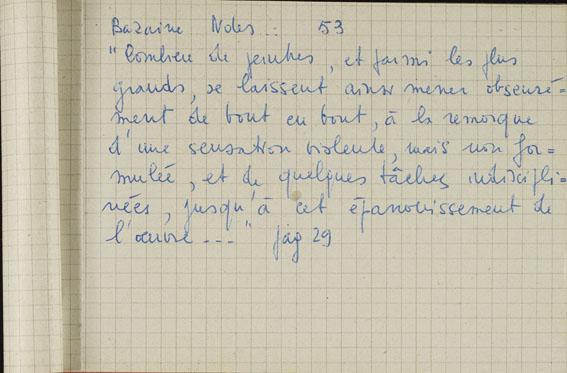 Bazaine Notes .. 53
"Combien de peintres, et parmi les plus
grands, se laissent ainsi mener obscuré-
ment de bout en bout, à la remorque
d'une sensation violente, mais non for-
mulée, et de quelques tâches indiscipli-
nées, jusqu'à cet épanouissement de
l'œuvre ..." pag 29